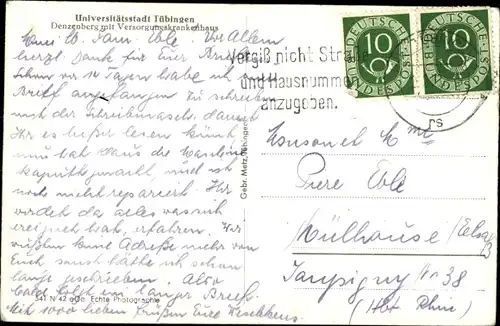 Universitätsstadt Tübingen
Denzenberg mit Versorgungskrankenhaus
Vor Allem
herzl. Dank für Euer
Schon vor 14 Tagen habe ich
Brief angefangen zu schreiben
mit der Schreibmasch. damit
Ihr es besser lesen könnt
nun hat das die Maschine
kaputt gemacht, und ist
noch nicht repariert. Ihr
werdet da alles was sich
ereignet hat, erfahren. Wir
wußten keine Adreße mehr von
Euch sonst hätte ich schon
lange geschrieben. Also
bald folgt ein langer Brief.
Mit 1000 lieben Grüßen Eure
541 N 42 Echte Photographie
Gebr. Metz, Tübingen
Vergiß nicht Straße
und Hausnummer
anzugeben.
DEUTSCHE BUNDESPOST
10
DEUTSCHE BUNDESPOST
10
Monsieur et Me
Pierre Eble
Mülhouse / Elsaß
No 38
(Hbt Rhin)